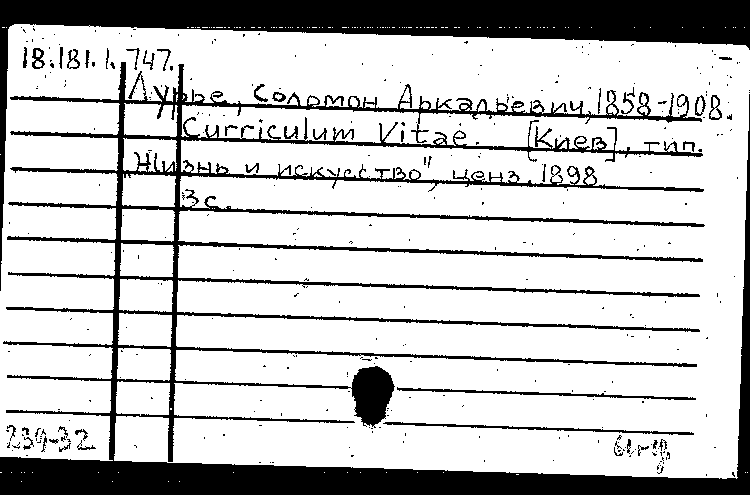 18.181.1.747.
Лурье, Соломон Аркадьевич, 1858-1908.
Curriculum Vitae. [Киев], тип.
„Жизнь и искусство", ценз. 1898
3 с.
239-32